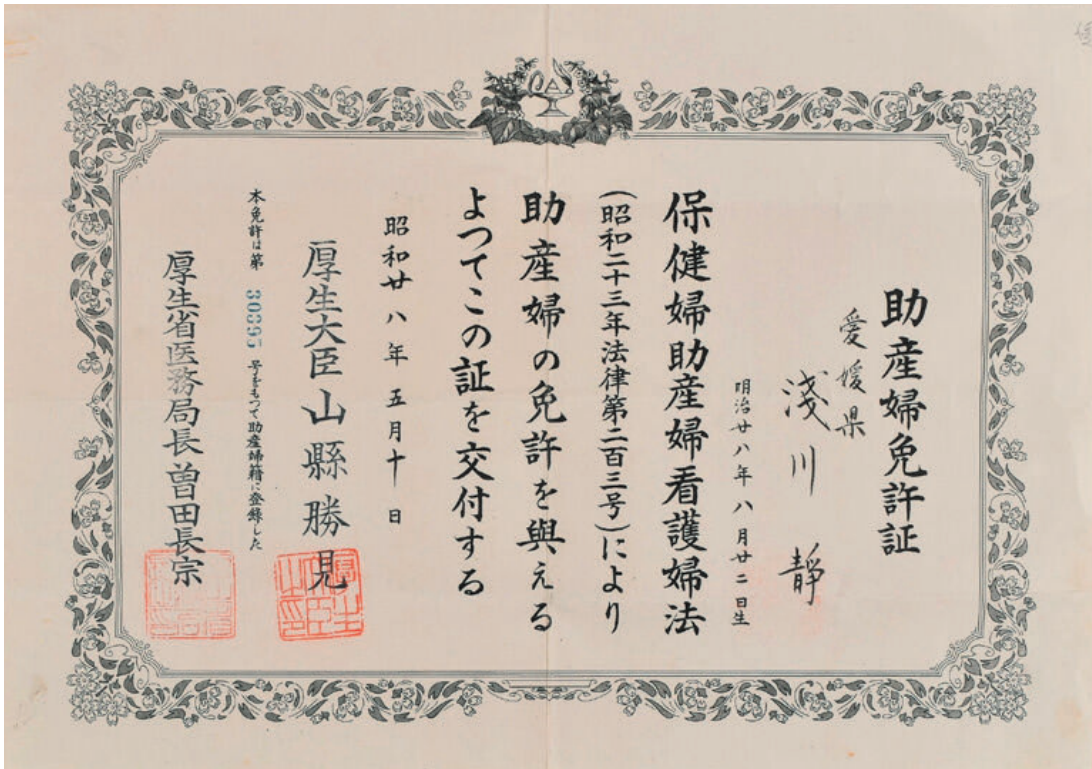 助産婦免許証
愛媛県
淺川 靜
明治廿八年八月廿二日生
保健婦助産婦看護婦法
(昭和二十三年法律第二百三号)により
助産婦の免許を與える
よつてこの証を交付する
昭和廿八年五月十日
厚生大臣 山縣勝見
本免許は第 30395 号をもつて助産婦籍に登録した
厚生省医務局長 曽田長宗